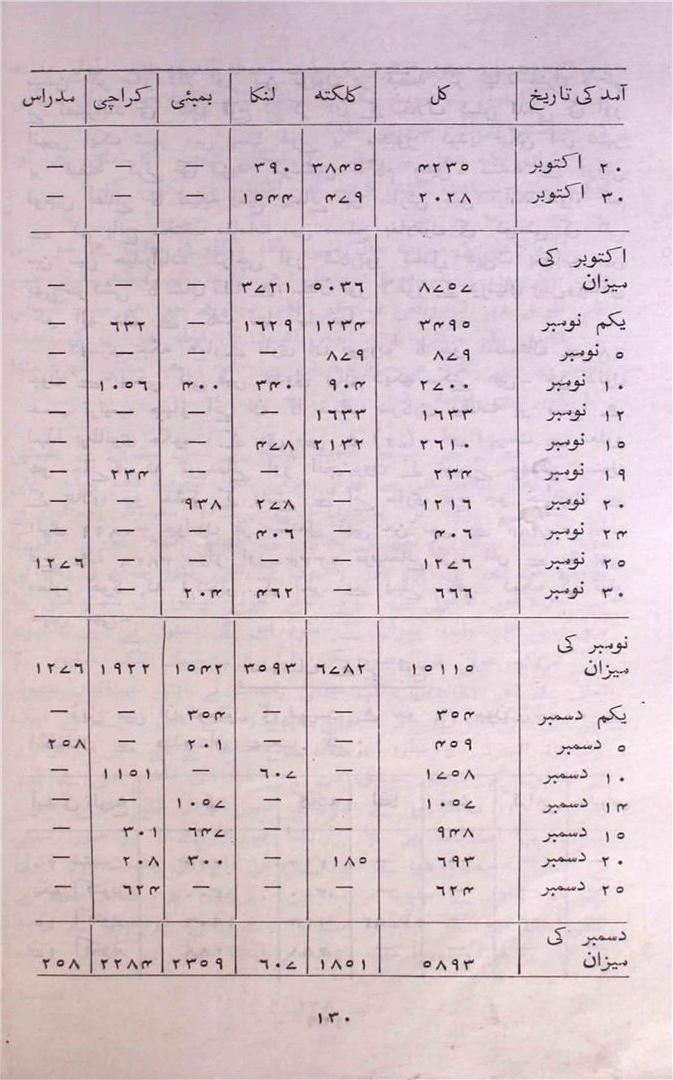 آمد کی تاریخ کل کلکتہ لنکا بمبئی کراچی مدراس
۲۰ اکتوبر ۴۲۳۵ ۳۸۴۵ ۳۹۰ — — —
۳۰ اکتوبر ۲۰۲۸ ۴۷۹ ۱۵۴۴ — — —
اکتوبر کی
میزان ۸۷۵۷ ۵۰۳۶ ۳۷۲۱ — — —
یکم نومبر ۳۴۹۵ ۱۲۳۴ ۱۶۲۹ — ۶۳۲ —
۵ نومبر ۸۷۹ ۸۷۹ — — — —
۱۰ نومبر ۲۷۰۰ ۹۰۴ ۳۴۰ ۴۰۰ ۱۰۵۶ —
۱۲ نومبر ۱۶۳۳ ۱۶۳۳ — — — —
۱۵ نومبر ۲۶۱۰ ۲۱۳۲ ۴۷۸ — — —
۱۹ نومبر ۲۳۴ — — — ۲۳۴ —
۲۰ نومبر ۱۲۱۶ — ۲۷۸ ۹۳۸ — —
۲۴ نومبر ۴۰۶ — ۴۰۶ — — —
۲۵ نومبر ۱۲۷۶ — — — — ۱۲۷۶
۳۰ نومبر ۶۶۶ — ۴۶۲ ۲۰۴ — —
نومبر کی
میزان ۱۵۱۱۵ ۶۷۸۲ ۳۵۹۳ ۱۵۴۲ ۱۹۲۲ ۱۲۷۶
یکم دسمبر ۳۵۴ — — ۳۵۴ — —
۵ دسمبر ۴۵۹ — — ۲۰۱ — ۲۵۸
۱۰ دسمبر ۱۷۵۸ — ۶۰۷ — ۱۱۵۱ —
۱۴ دسمبر ۱۰۵۷ — — ۱۰۵۷ — —
۱۵ دسمبر ۹۴۸ — — ۶۴۷ ۳۰۱ —
۲۰ دسمبر ۶۹۳ ۱۸۵ — ۳۰۰ ۲۰۸ —
۲۵ دسمبر ۶۲۴ — — — ۶۲۴ —
دسمبر کی
میزان ۵۸۹۳ ۱۸۵۱ ۶۰۷ ۲۳۵۹ ۲۲۸۴ ۲۵۸
۱۳۰